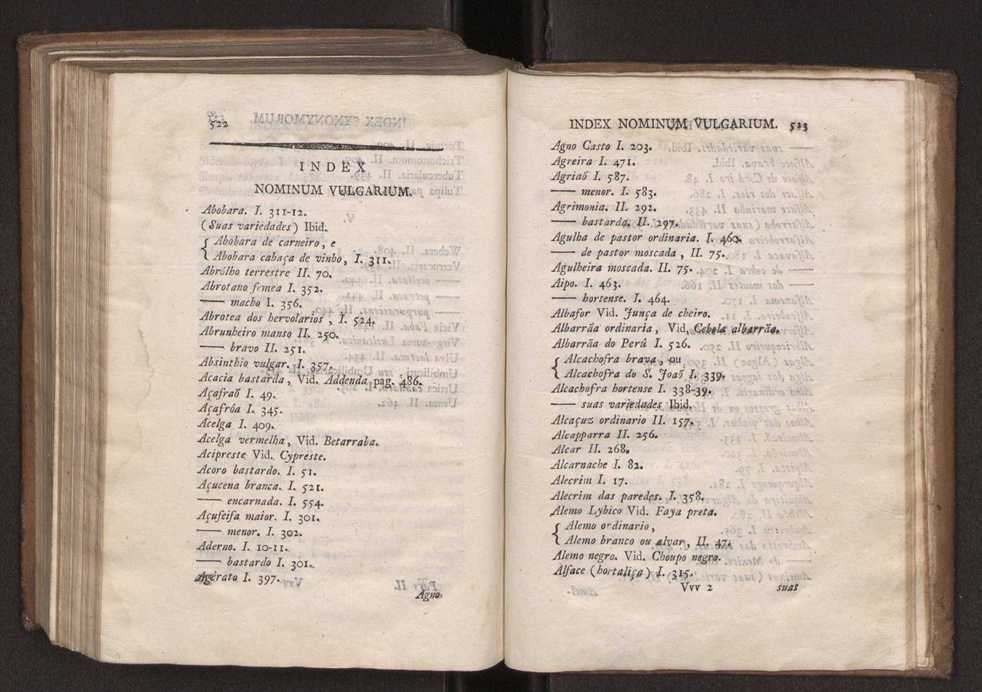 522
INDEX
NOMINUM VULGARIUM.
Abobara. I. 311-12.
(Suas variedades) Ibid.
{ Abobara de carneiro, e
{ Abobara cabaça de vinho, I. 311.
Abrólho terrestre II. 70.
Abrotano femea I. 352.
—— macho I. 356.
Abrotea dos hervolarios, I. 524.
Abrunheiro manso II. 250.
—— bravo II. 251.
Absinthio vulgar. I. 357.
Acacia bastarda, Vid. Addenda pag. 486.
Açafraõ I. 49.
Açafrôa I. 345.
Acelga I. 409.
Acelga vermelha, Vid. Betarraba.
Acipreste Vid. Cypreste.
Acoro bastardo. I. 51.
Açucena branca. I. 521.
—— encarnada. I. 554.
Açufeifa maior. I. 301.
—— menor. I. 302.
Aderno. I. 10-11.
—— bastardo I. 301.
Agerato I. 397.
Agno
INDEX NOMINUM VULGARIUM. 523
Agno Casto I. 203.
Agreira I. 471.
Agriaõ I. 587.
—— menor. I. 583.
Agrimonia. II. 292.
—— bastarda. II. 297.
Agulha de pastor ordinaria. I. 460.
—— de pastor moscada, II. 75.
Agulheira moscada. II. 75.
Aipo. I. 463.
—— hortense. I. 464.
Albafor Vid. Junça de cheiro.
Albarrãa ordinaria, Vid. Cebola albarrãa.
Albarrãa do Perú I. 526.
{ Alcachofra brava, ou
{ Alcachofra do S. Joaõ I. 339.
Alcachofra hortense I. 338-39.
—— suas variedades Ibid.
Alcaçuz ordinario II. 157.
Alcapparra II. 256.
Alcar II. 268.
Alcarnache I. 82.
Alecrim I. 17.
Alecrim das paredes. I. 358.
Alemo Lybico Vid. Faya preta.
{ Alemo ordinario,
{ Alemo branco ou alvar, II. 47.
Alemo negro. Vid. Choupo negro.
Alface (hortaliça) I. 315.
Vvv 2 suas